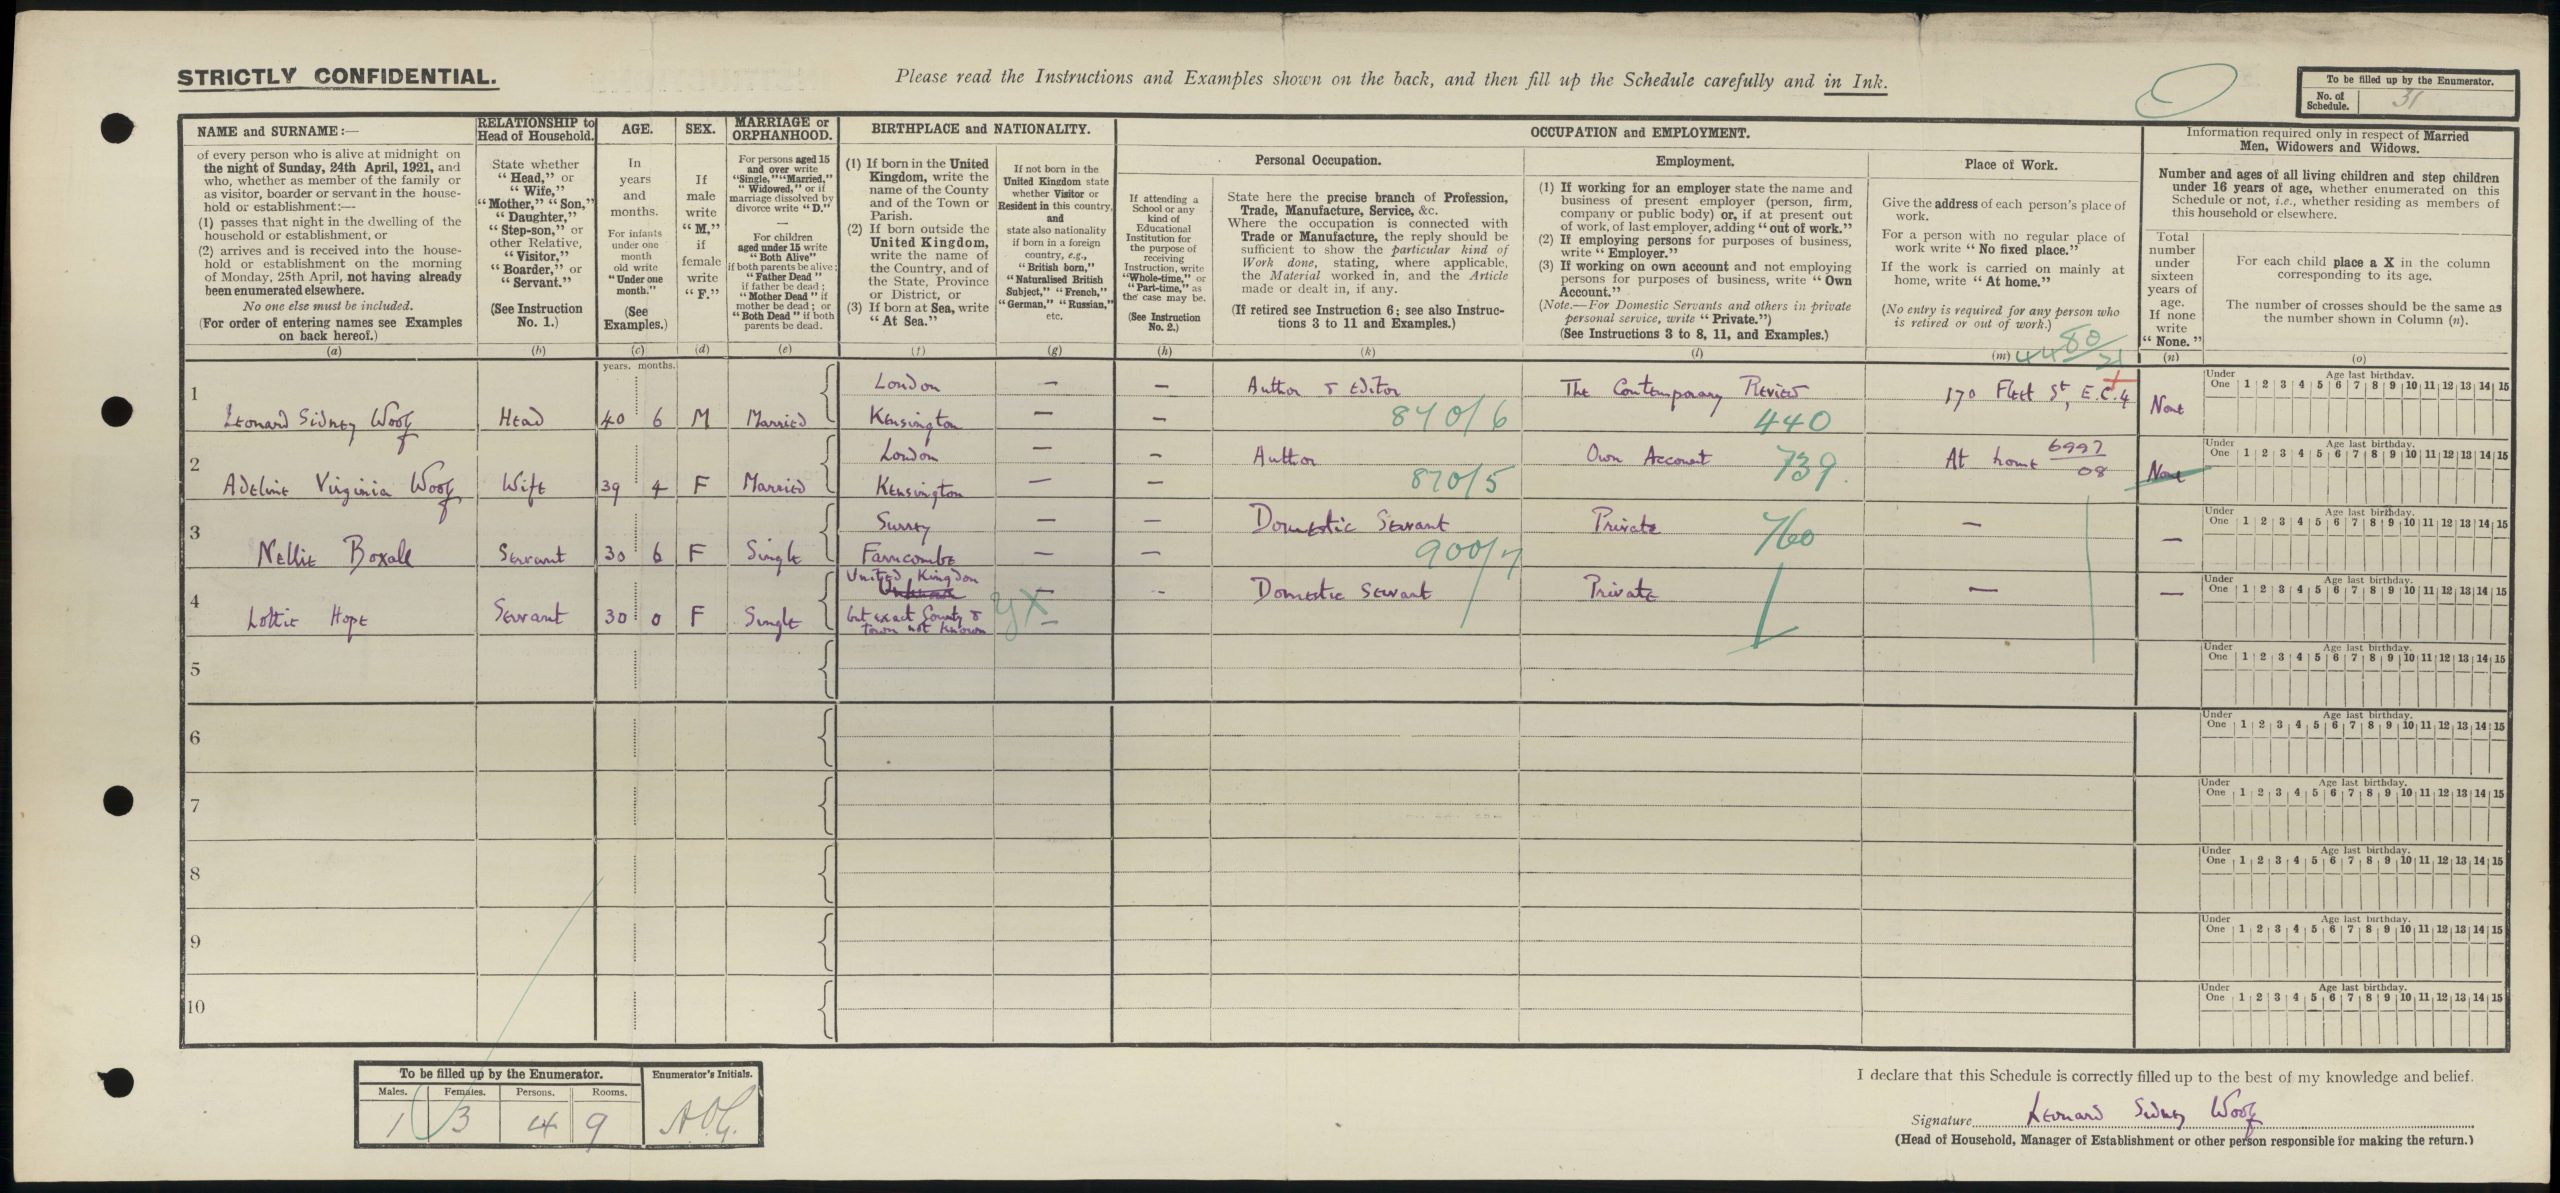 STRICTLY CONFIDENTIAL.
Please read the Instructions and Examples shown on the back, and then fill up the Schedule carefully and in Ink.
To be filled up by the Enumerator.
No. of Schedule. 31
NAME and SURNAME:—
of every person who is alive at midnight on
the night of Sunday, 24th April, 1921, and
who, whether as member of the family or
as visitor, boarder or servant in the house-
hold or establishment:—
(1) passes that night in the dwelling of the
household or establishment, or
(2) arrives and is received into the house-
hold or establishment on the morning
of Monday, 25th April, not having already
been enumerated elsewhere.
No one else must be included.
(For order of entering names see Examples
on back hereof.)
(a)
RELATIONSHIP to
Head of Household.
State whether
"Head," or
"Wife,"
"Mother," "Son,"
"Daughter,"
"Step-son," or
other Relative,
"Visitor,"
"Boarder," or
"Servant."
(See Instruction
No. 1.)
(b)
AGE.
In
years
and
months.
For infants
under one
month
old write
"Under one
month."
(See
Examples.)
(c)
years. months.
SEX.
If
male
write
"M,"
if
female
write
"F."
(d)
MARRIAGE or
ORPHANHOOD.
For persons aged 15
and over write
"Single," "Married,"
"Widowed," or if
marriage dissolved by
divorce write "D."
—
For children
aged under 15 write
"Both Alive"
if both parents be alive;
"Father Dead"
if father be dead;
"Mother Dead" if
mother be dead; or
"Both Dead" if both
parents be dead.
(e)
BIRTHPLACE and NATIONALITY.
(1) If born in the United
Kingdom, write the
name of the County
and of the Town or
Parish.
(2) If born outside the
United Kingdom,
write the name of
the Country, and of
the State, Province
or District, or
(3) If born at Sea, write
"At Sea."
(f)
If not born in the
United Kingdom state
whether Visitor or
Resident in this country,
and
state also nationality
if born in a foreign
country, e.g.,
"British born,"
"Naturalised British
Subject," "French,"
"German," "Russian,"
etc.
(g)
OCCUPATION and EMPLOYMENT.
If attending a
School or any
kind of
Educational
Institution for
the purpose of
receiving
Instruction, write
"Whole-time," or
"Part-time," as
the case may be.
(See Instruction
No. 2.)
(h)
Personal Occupation.
State here the precise branch of Profession,
Trade, Manufacture, Service, &c.
Where the occupation is connected with
Trade or Manufacture, the reply should be
sufficient to show the particular kind of
Work done, stating, where applicable,
the Material worked in, and the Article
made or dealt in, if any.
(If retired see Instruction 6; see also Instruc-
tions 3 to 11 and Examples.)
(k)
Employment.
(1) If working for an employer state the name and
business of present employer (person, firm,
company or public body) or, if at present out
of work, of last employer, adding "out of work."
(2) If employing persons for purposes of business,
write "Employer."
(3) If working on own account and not employing
persons for purposes of business, write "Own
Account."
(Note.—For Domestic Servants and others in private
personal service, write "Private.")
(See Instructions 3 to 8, 11, and Examples.)
(l)
Place of Work.
Give the address of each person's place of
work.
For a person with no regular place of
work write "No fixed place."
If the work is carried on mainly at
home, write "At home."
(No entry is required for any person who
is retired or out of work.)
(m)
Information required only in respect of Married
Men, Widowers and Widows.
Number and ages of all living children and step children
under 16 years of age, whether enumerated on this
Schedule or not, i.e., whether residing as members of
this household or elsewhere.
Total
number
under
sixteen
years of
age.
If none
write
"None."
(n)
For each child place a X in the column
corresponding to its age.
The number of crosses should be the same as
the number shown in Column (n).
(o)
44 80/21
1
Leonard Sidney Woolf Head 40 6 M Married
London
Kensington
— —
— —
Author & Editor
870/6
The Contemporary Review
440
170 Fleet St, E.C.4
None
Under One Age last birthday. 1 2 3 4 5 6 7 8 9 10 11 12 13 14 15
2
Adeline Virginia Woolf Wife 39 4 F Married
London
Kensington
— —
— —
Author
870/5
Own Account
739
At home
6997/08
None
Under One Age last birthday. 1 2 3 4 5 6 7 8 9 10 11 12 13 14 15
3
Nellie Boxall Servant 30 6 F Single
Surrey
Farncombe
— —
— —
Domestic Servant
900/7
Private
760
—
—
Under One Age last birthday. 1 2 3 4 5 6 7 8 9 10 11 12 13 14 15
4
Lottie Hope Servant 30 0 F Single
United Kingdom
Unknown
but exact County &
Town not known
— —
—
yx
Domestic Servant
Private
—
—
Under One Age last birthday. 1 2 3 4 5 6 7 8 9 10 11 12 13 14 15
5
Under One Age last birthday. 1 2 3 4 5 6 7 8 9 10 11 12 13 14 15
6
Under One Age last birthday. 1 2 3 4 5 6 7 8 9 10 11 12 13 14 15
7
Under One Age last birthday. 1 2 3 4 5 6 7 8 9 10 11 12 13 14 15
8
Under One Age last birthday. 1 2 3 4 5 6 7 8 9 10 11 12 13 14 15
9
Under One Age last birthday. 1 2 3 4 5 6 7 8 9 10 11 12 13 14 15
10
Under One Age last birthday. 1 2 3 4 5 6 7 8 9 10 11 12 13 14 15
To be filled up by the Enumerator.
Males. Females. Persons. Rooms.
1 3 4 9
Enumerator's Initials.
I declare that this Schedule is correctly filled up to the best of my knowledge and belief.
Signature Leonard Sidney Woolf
(Head of Household, Manager of Establishment or other person responsible for making the return.)